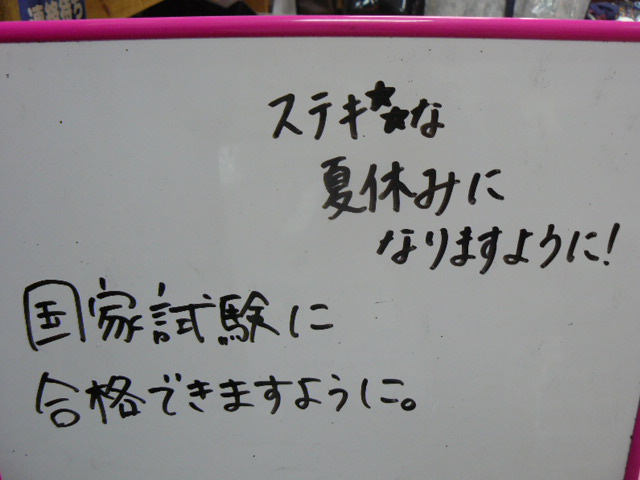 連絡待ち
ステキ★★な
夏休みに
なりますように!
国家試験に
合格できますように。